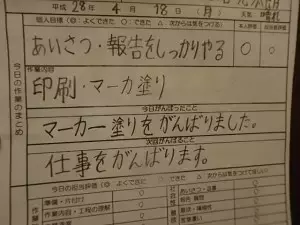 平成 28年 4月 18日（月）
個人目標（◎よくできた ○できた △次から気をつける） 本人評価
あいさつ・報告をしっかりやる ○ ○
今日の作業のまとめ
作業内容
印刷・マーカ塗り
今日がんばったこと
マーカー塗りをがんばりました。
次回がんばること
仕事をがんばります。
今日の担当評価（◎よくできた ○できた △次から気をつける）
準備・片付け ○
作業内容・工程の理解 ○
あいさつ・返事